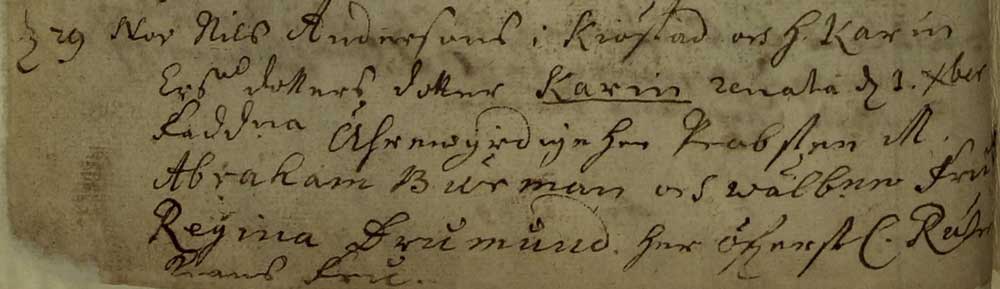 D 29 Nov Nils Andersons i Kiöstad och h. Karin
Ers dotters dotter Karin renata d 1. Xber
Faddra Ährewyrdige her Probsten M.
Abraham Burman och wälbne Fru
Regina Drumund. her öfverst C.
Fru.